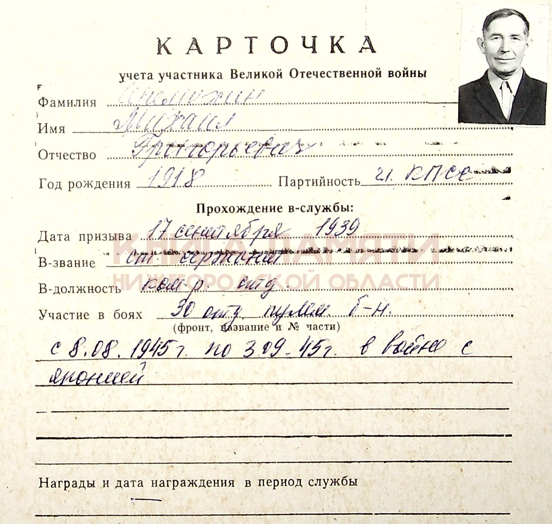 КАРТОЧКА
учета участника Великой Отечественной войны
Фамилия
Имя Михаил
Отчество Григорьевич
Год рождения 1918 Партийность чл. КПСС
Прохождение в-службы:
Дата призыва 17 сентября 1939
КНИГА ПАМЯТИ
В-звание ст сержант
НИЖЕГОРОДСКОЙ ОБЛАСТИ
В-должность ком-р. отд
Участие в боях 30 отд пулем б-н.
(фронт, название и № части)
с 8.08.1945г. по 3 09-45г. в войне с
японией
Награды и дата награждения в период службы